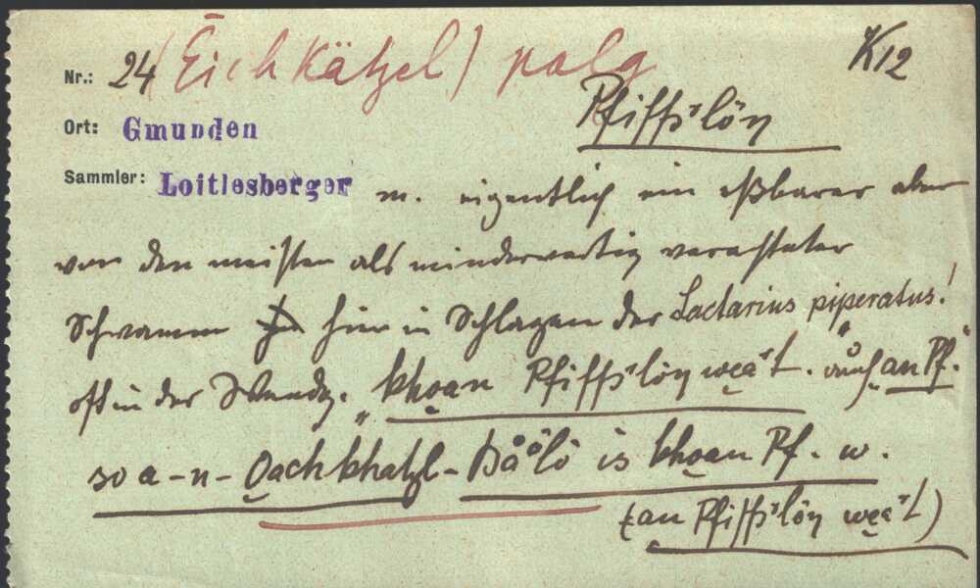 Nr.: 24 (Eichkätzel) palg K12
Pfiffs'lön
Ort: Gmunden
Sammler: Loitlesberger m. eigentlich ein eßbarer aber
von den meisten als minderwertig verachteter
Schwamm hier in Schlagen der Lactarius piperatus!
oft in der Wendg. „khoan Pfiffs'lön weat. auch „an Pf."
so a-n-Oachkhatzl-Båålö is khoan Pf. w.
(an Pfiffs'lön weat)